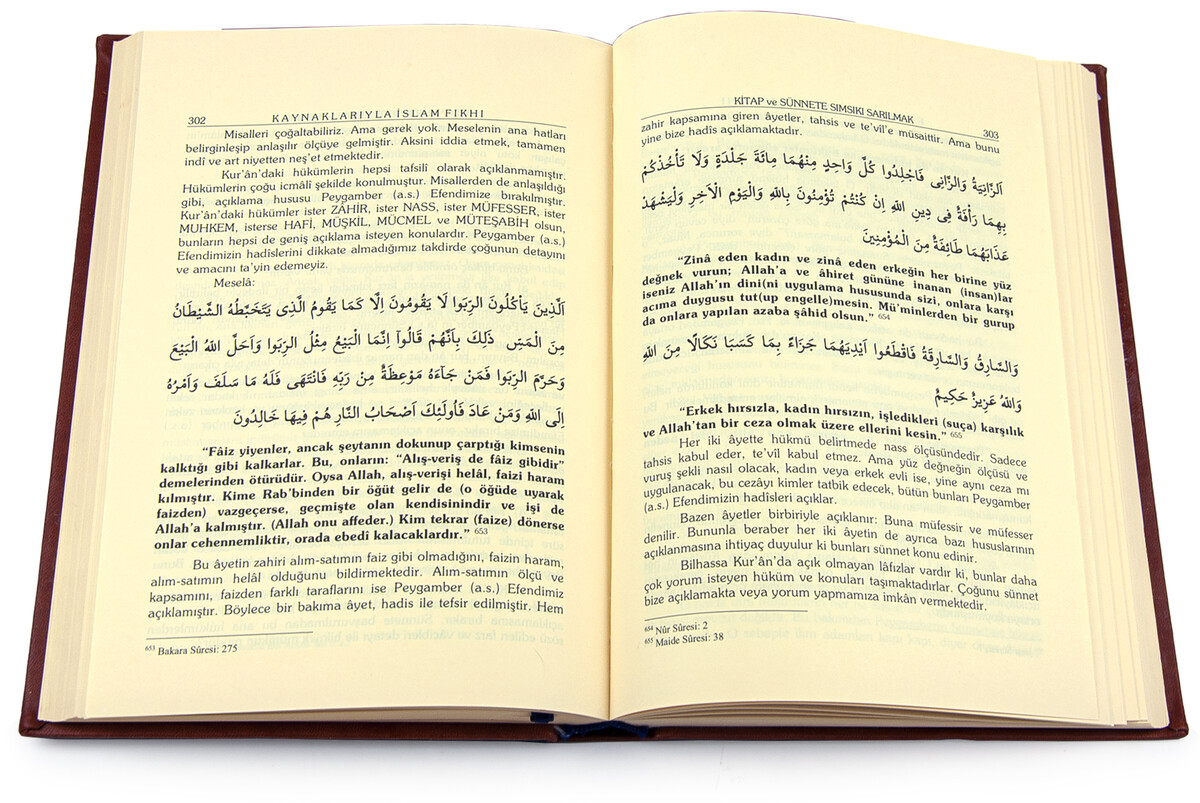 302 KAYNAKLARIYLA İSLAM FIKHI
Misalleri çoğaltabiliriz. Ama gerek yok. Meselenin ana hatları
belirginleşip anlaşılır ölçüye gelmiştir. Aksini iddia etmek, tamamen
indî ve art niyetten neş'et etmektedir.
Kur'ân'daki hükümlerin hepsi tafsilî olarak açıklanmamıştır.
Hükümlerin çoğu icmâlî şekilde konulmuştur. Misallerden de anlaşıldığı
gibi, açıklama hususu Peygamber (a.s.) Efendimize bırakılmıştır.
Kur'ân'daki hükümler ister ZÂHİR, ister NASS, ister MÜFESSER, ister
MUHKEM, isterse HAFİ, MÜŞKİL, MÜCMEL ve MÜTEŞABİH olsun,
bunların hepsi de geniş açıklama isteyen konulardır. Peygamber (a.s.)
Efendimizin hadîslerini dikkate almadığımız takdirde çoğunun detayını
ve amacını ta'yin edemeyiz.
Meselâ:
اَلَّذِينَ يَأْكُلُونَ الرِّبَوا لَا يَقُومُونَ اِلَّا كَمَا يَقُومُ الَّذِى يَتَخَبَّطُهُ الشَّيْطَانُ
مِنَ الْمَسِّ ذَلِكَ بِاَنَّهُمْ قَالُوآ اِنَّمَا الْبَيْعُ مِثْلُ الرِّبَوا وَاَحَلَّ اللهُ الْبَيْعَ
وَحَرَّمَ الرِّبَوا فَمَنْ جَآءَهُ مَوْعِظَةٌ مِنْ رَبِّهِ فَانْتَهَى فَلَهُ مَا سَلَفَ وَاَمْرُهُ
اِلَى اللهِ وَمَنْ عَادَ فَاُولَئِكَ اَصْحَابُ النَّارِ هُمْ فِيهَا خَالِدُونَ
“Fâiz yiyenler, ancak şeytanın dokunup çarptığı kimsenin
kalktığı gibi kalkarlar. Bu, onların: “Alış-veriş de fâiz gibidir”
demelerinden ötürüdür. Oysa Allah, alış-verişi helâl, faizi haram
kılmıştır. Kime Rab'binden bir öğüt gelir de (o öğüde uyarak
faizden) vazgeçerse, geçmişte olan kendisinindir ve işi de
Allah'a kalmıştır. (Allah onu affeder.) Kim tekrar (faize) dönerse
onlar cehennemliktir, orada ebedî kalacaklardır.” 653
Bu âyetin zahiri alım-satımın faiz gibi olmadığını, faizin haram,
alım-satımın helâl olduğunu bildirmektedir. Alım-satımın ölçü ve
kapsamını, faizden farklı taraflarını ise Peygamber (a.s.) Efendimiz
açıklamıştır. Böylece bir bakıma âyet, hadis ile tefsir edilmiştir. Hem
653 Bakara Sûresi: 275
KİTAP ve SÜNNETE SIMSIKI SARILMAK 303
zahir kapsamına giren âyetler, tahsis ve te'vîl'e müsaittir. Ama bunu
yine bize hadîs açıklamaktadır.
اَلزَّانِيَةُ وَالزَّانِى فَاجْلِدُوا كُلَّ وَاحِدٍ مِنْهُمَا مِائَةَ جَلْدَةٍ وَلَا تَأْخُذْكُمْ
بِهِمَا رَأْفَةٌ فِى دِينِ اللهِ اِنْ كُنْتُمْ تُؤْمِنُونَ بِاللهِ وَالْيَوْمِ الْاٰخِرِ وَلْيَشْهَدْ
عَذَابَهُمَا طَائِفَةٌ مِنَ الْمُؤْمِنِينَ
“Zinâ eden kadın ve zinâ eden erkeğin her birine yüz
değnek vurun; Allah'a ve âhiret gününe inanan (insan)lar
iseniz Allah'ın dini(ni uygulama hususunda sizi, onlara karşı
acıma duygusu tut(up engelle)mesin. Mü'minlerden bir gurup
da onlara yapılan azaba şâhid olsun.” 654
وَالسَّارِقُ وَالسَّارِقَةُ فَاقْطَعُوا اَيْدِيَهُمَا جَزَآءً بِمَا كَسَبَا نَكَالًا مِنَ اللهِ
وَاللهُ عَزِيزٌ حَكِيمٌ
“Erkek hırsızla, kadın hırsızın, işledikleri (suça) karşılık
ve Allah'tan bir ceza olmak üzere ellerini kesin.” 655
Her iki âyette hükmü belirtmede nass ölçüsündedir. Sadece
tahsis kabul eder, te'vîl kabul etmez. Ama yüz değneğin ölçüsü ve
vuruş şekli nasıl olacak, kadın veya erkek evli ise, yine aynı ceza mı
uygulanacak, bu cezâyı kimler tatbik edecek, bütün bunları Peygamber
(a.s.) Efendimizin hadîsleri açıklar.
Bazen âyetler birbiriyle açıklanır: Buna müfessir ve müfesser
denilir. Bununla beraber her iki âyetin de ayrıca bazı hususlarının
açıklanmasına ihtiyaç duyulur ki bunları sünnet konu edinir.
Bilhassa Kur'ân'da açık olmayan lâfızlar vardır ki, bunlar daha
çok yorum isteyen hüküm ve konuları taşımaktadırlar. Çoğunu sünnet
bize açıklamakta veya yorum yapmamıza imkân vermektedir.
654 Nûr Sûresi: 2
655 Maide Sûresi: 38